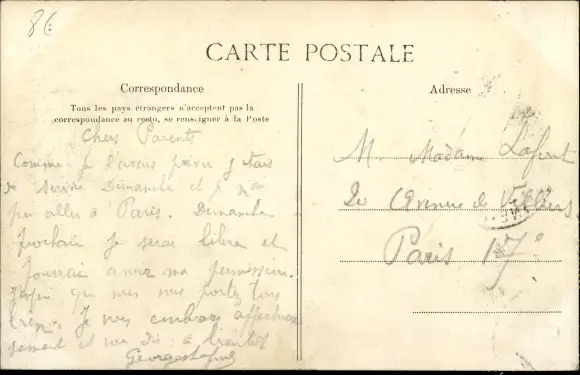 86
CARTE POSTALE
Correspondance
Adresse
Tous les pays étrangers n'acceptent pas la
correspondance au recto, se renseigner à la Poste
Chers Parents
Comme je l'avais prévu j'étais
de service Dimanche et je n'ai
pu aller à Paris. Dimanche
prochain je serai libre et
pourrai avoir ma permission.
J'espère que vous vous portez tous
bien. Je vous embrasse affectueu
sement et vous dis : à bientôt
Georges Lafont
M. Madame Lafont
20 Avenue de Villiers
Paris 17e